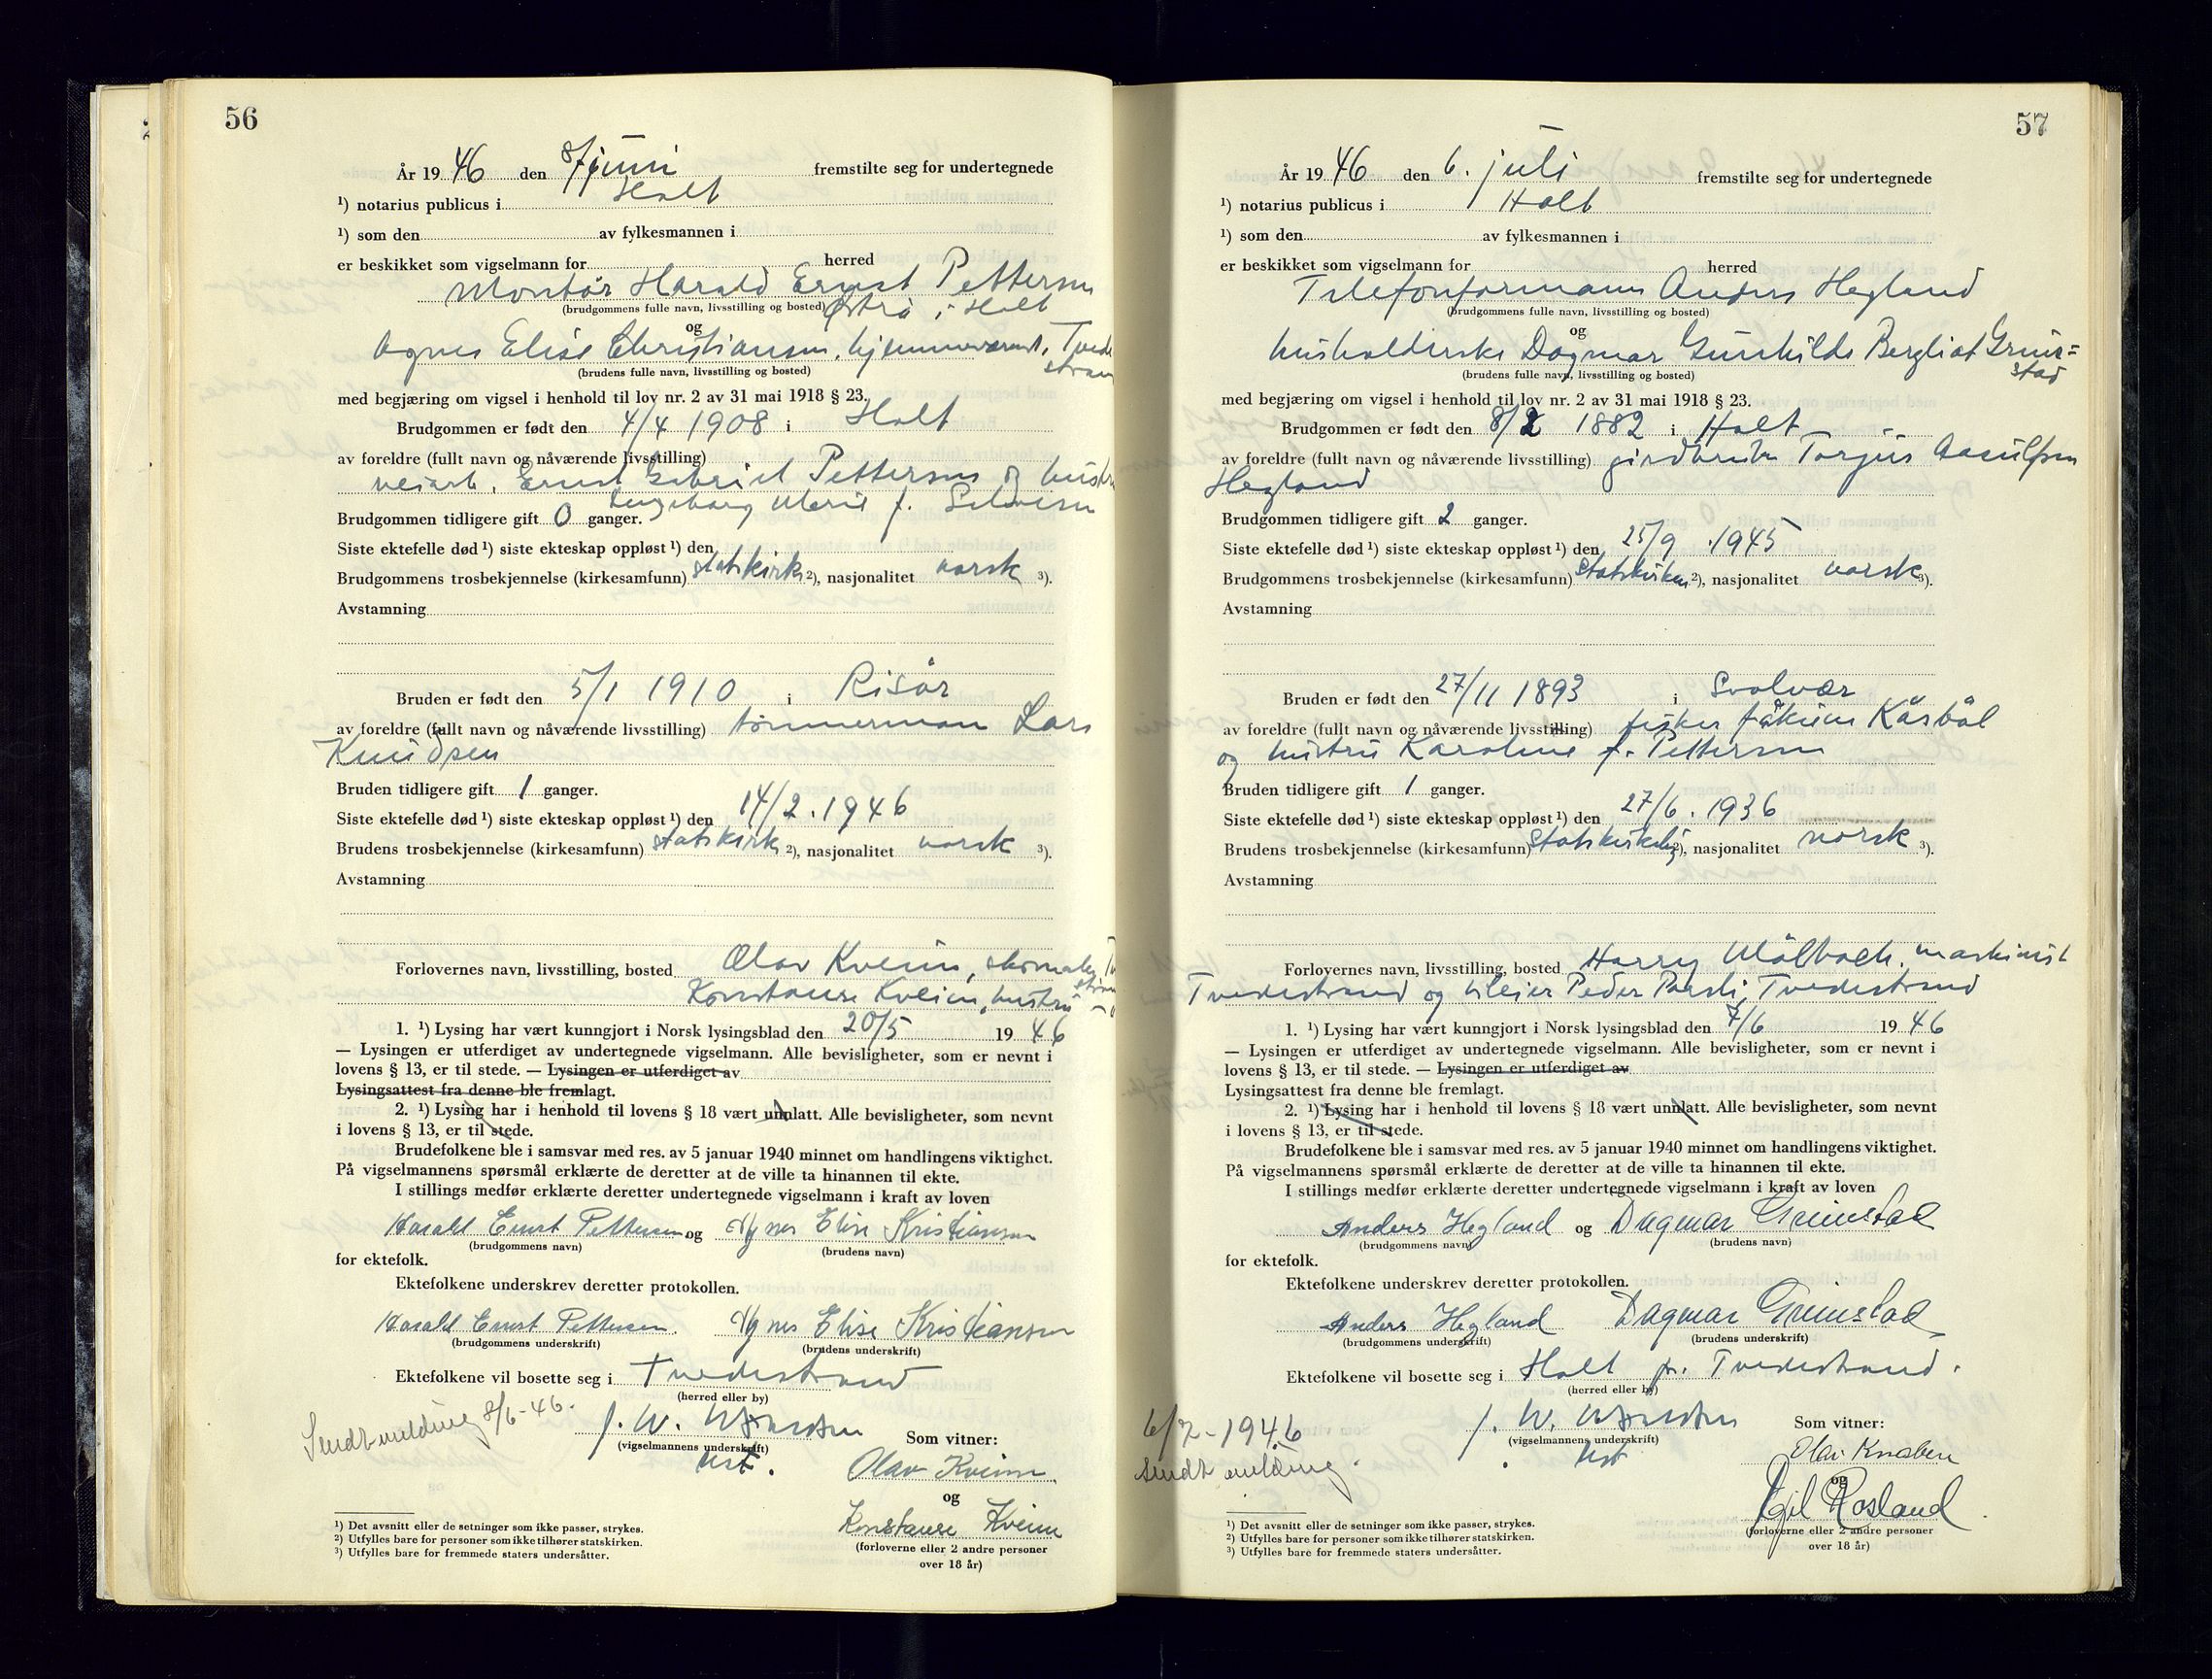 56
År 19 46 den 8/6 juni fremstilte seg for undertegnede
¹) notarius publicus i Holt
¹) som den av fylkesmannen i
er beskikket som vigselmann for herred
Montør Harald Ernst Pettersen
(brudgommens fulle navn, livsstilling og bosted) Østrå i Holt
og
Agnes Elise Christiansen, hjemmeværende, Tvede
(brudens fulle navn, livsstilling og bosted) stran
med begjæring om vigsel i henhold til lov nr. 2 av 31 mai 1918 § 23.
Brudgommen er født den 4/4 1908 i Holt
av foreldre (fullt navn og nåværende livsstilling)
veiarb. Ernst Gabriel Pettersen og hustru
Ingeborg Marie f.
Brudgommen tidligere gift 0 ganger.
Siste ektefelle død ¹) siste ekteskap oppløst ¹) den
Brudgommens trosbekjennelse (kirkesamfunn) statskirk ²), nasjonalitet norsk ³).
Avstamning
Bruden er født den 5/1 1910 i Risør
av foreldre (fullt navn og nåværende livsstilling) tømmermann Lars
Knudsen
Bruden tidligere gift 1 ganger.
Siste ektefelle død ¹) siste ekteskap oppløst ¹) den 14/2. 1946
Brudens trosbekjennelse (kirkesamfunn) statskirk ²), nasjonalitet norsk ³).
Avstamning
Forlovernes navn, livsstilling, bosted Olav Kveim, skomaker,
Konstanse Kveim, hustru
1. ¹) Lysing har vært kunngjort i Norsk lysingsblad den 20/5 19 46
— Lysingen er utferdiget av undertegnede vigselmann. Alle bevisligheter, som er nevnt i
lovens § 13, er til stede. — Lysingen er utferdiget av
Lysingsattest fra denne ble fremlagt.
2. ¹) Lysing har i henhold til lovens § 18 vært unnlatt. Alle bevisligheter, som nevnt
i lovens § 13, er til stede.
Brudefolkene ble i samsvar med res. av 5 januar 1940 minnet om handlingens viktighet.
På vigselmannens spørsmål erklærte de deretter at de ville ta hinannen til ekte.
I stillings medfør erklærte deretter undertegnede vigselmann i kraft av loven
Harald Ernst Pettersen og Agnes Elise Kristiansen
(brudgommens navn) (brudens navn)
for ektefolk.
Ektefolkene underskrev deretter protokollen.
Harald Ernst Pettersen. Agnes Elise Kristiansen
(brudgommens underskrift) (brudens underskrift)
Ektefolkene vil bosette seg i Tvedestrand
(herred eller by)
Sendt melding 8/6-46.
J. W.
(vigselmannens underskrift)
Som vitner:
Olav Kveim
og
Konstanse Kveim
(forloverne eller 2 andre personer
over 18 år)
¹) Det avsnitt eller de setninger som ikke passer, strykes.
²) Utfylles bare for personer som ikke tilhører statskirken.
³) Utfylles bare for fremmede staters undersåtter.
57
År 19 46 den 6. juli fremstilte seg for undertegnede
¹) notarius publicus i Holt
¹) som den av fylkesmannen i
er beskikket som vigselmann for herred
Telefonformann Anders Hegland
(brudgommens fulle navn, livsstilling og bosted)
og
husholderske Dagmar Gunhilde Bergliot Grim=
(brudens fulle navn, livsstilling og bosted) stad
med begjæring om vigsel i henhold til lov nr. 2 av 31 mai 1918 § 23.
Brudgommen er født den 8/2 1882 i Holt
av foreldre (fullt navn og nåværende livsstilling) gårdbruker Torjus Aasulfsen
Hegland
Brudgommen tidligere gift 2 ganger.
Siste ektefelle død ¹) siste ekteskap oppløst ¹) den 25/9 .1945
Brudgommens trosbekjennelse (kirkesamfunn) statskirken ²), nasjonalitet norsk ³).
Avstamning
Bruden er født den 27/11 1893 i Svolvær
av foreldre (fullt navn og nåværende livsstilling) fisker Kårbøl
og hustru Karoline f. Pettersen
Bruden tidligere gift 1 ganger.
Siste ektefelle død ¹) siste ekteskap oppløst ¹) den 27/6. 1936
Brudens trosbekjennelse (kirkesamfunn) statskirkelig ²), nasjonalitet norsk ³).
Avstamning
Forlovernes navn, livsstilling, bosted Harry maskinist
Tvedestrand og Peder Tvedestrand
1. ¹) Lysing har vært kunngjort i Norsk lysingsblad den 7/6 19 46
— Lysingen er utferdiget av undertegnede vigselmann. Alle bevisligheter, som er nevnt i
lovens § 13, er til stede. — Lysingen er utferdiget av
Lysingsattest fra denne ble fremlagt.
2. ¹) Lysing har i henhold til lovens § 18 vært unnlatt. Alle bevisligheter, som nevnt
i lovens § 13, er til stede.
Brudefolkene ble i samsvar med res. av 5 januar 1940 minnet om handlingens viktighet.
På vigselmannens spørsmål erklærte de deretter at de ville ta hinannen til ekte.
I stillings medfør erklærte deretter undertegnede vigselmann i kraft av loven
Anders Hegland og Dagmar Grimstad
(brudgommens navn) (brudens navn)
for ektefolk.
Ektefolkene underskrev deretter protokollen.
Anders Hegland Dagmar Grimstad
(brudgommens underskrift) (brudens underskrift)
Ektefolkene vil bosette seg i Holt pr. Tvedestrand.
(herred eller by)
6/7-1946
sendt melding.
J. W.
(vigselmannens underskrift)
Som vitner:
Olav Knaben
og
Egil Rosland
(forloverne eller 2 andre personer
over 18 år)
¹) Det avsnitt eller de setninger som ikke passer, strykes.
²) Utfylles bare for personer som ikke tilhører statskirken.
³) Utfylles bare for fremmede staters undersåtter.